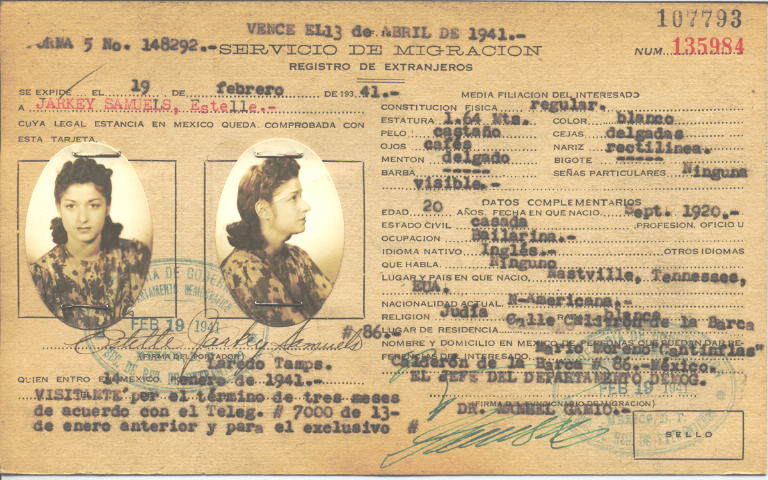 107793
VENCE EL 13 de ABRIL DE 1941.-
FORMA 5 No. 148292.-
SERVICIO DE MIGRACION
NUM. 135984
REGISTRO DE EXTRANJEROS
SE EXPIDE EL 19 DE febrero DE 193 41.-
A JARKEY SAMUELS, Estelle.-
CUYA LEGAL ESTANCIA EN MEXICO QUEDA COMPROBADA CON
ESTA TARJETA.
MEDIA FILIACION DEL INTERESADO
CONSTITUCION FISICA regular.
ESTATURA 1.64 Mts. COLOR blanco
PELO castaño CEJAS delgadas
OJOS cafés NARIZ rectilinea.
MENTON delgado BIGOTE -----
BARBA ----- SEÑAS PARTICULARES Ninguna
visible.-
DATOS COMPLEMENTARIOS
EDAD 20 AÑOS. FECHA EN QUE NACIO. Sept. 1920.-
ESTADO CIVIL casada PROFESION, OFICIO U
OCUPACION Bailarina.-
IDIOMA NATIVO Inglés.- OTROS IDIOMAS
QUE HABLA. Ninguno
LUGAR Y PAIS EN QUE NACIO. Nastville, Tennesses,
EUA.
NACIONALIDAD ACTUAL. N-Americana.-
RELIGION Judía blanca
LUGAR DE RESIDENCIA Calle Calderon de la Barca
#86.-
NOMBRE Y DOMICILIO EN MEXICO DE PERSONAS QUE PUEDAN DAR RE-
FERENCIAS DEL INTERESADO. Mario Moreno "Cantinflas"
Calderón de la Barca # 86.-México.
EL JEFE DEL DEPARTAMENTO DEMOG.
(FIRMA DEL FUNCIONARIO DE MIGRACION)
DR. MANUEL GAMIO.-
SELLO
FEB 19 1941
Estelle Jarkey Samuels
(FIRMA DEL PORTADOR)
Laredo Tamps.
QUIEN ENTRO EN MEXICO enero de 1941.-
VISITANTE por el término de tres meses
de acuerdo con el Teleg. # 7000 de 13-
de enero anterior y para el exclusivo #
FEB 19 1941
MEXICO D. F.